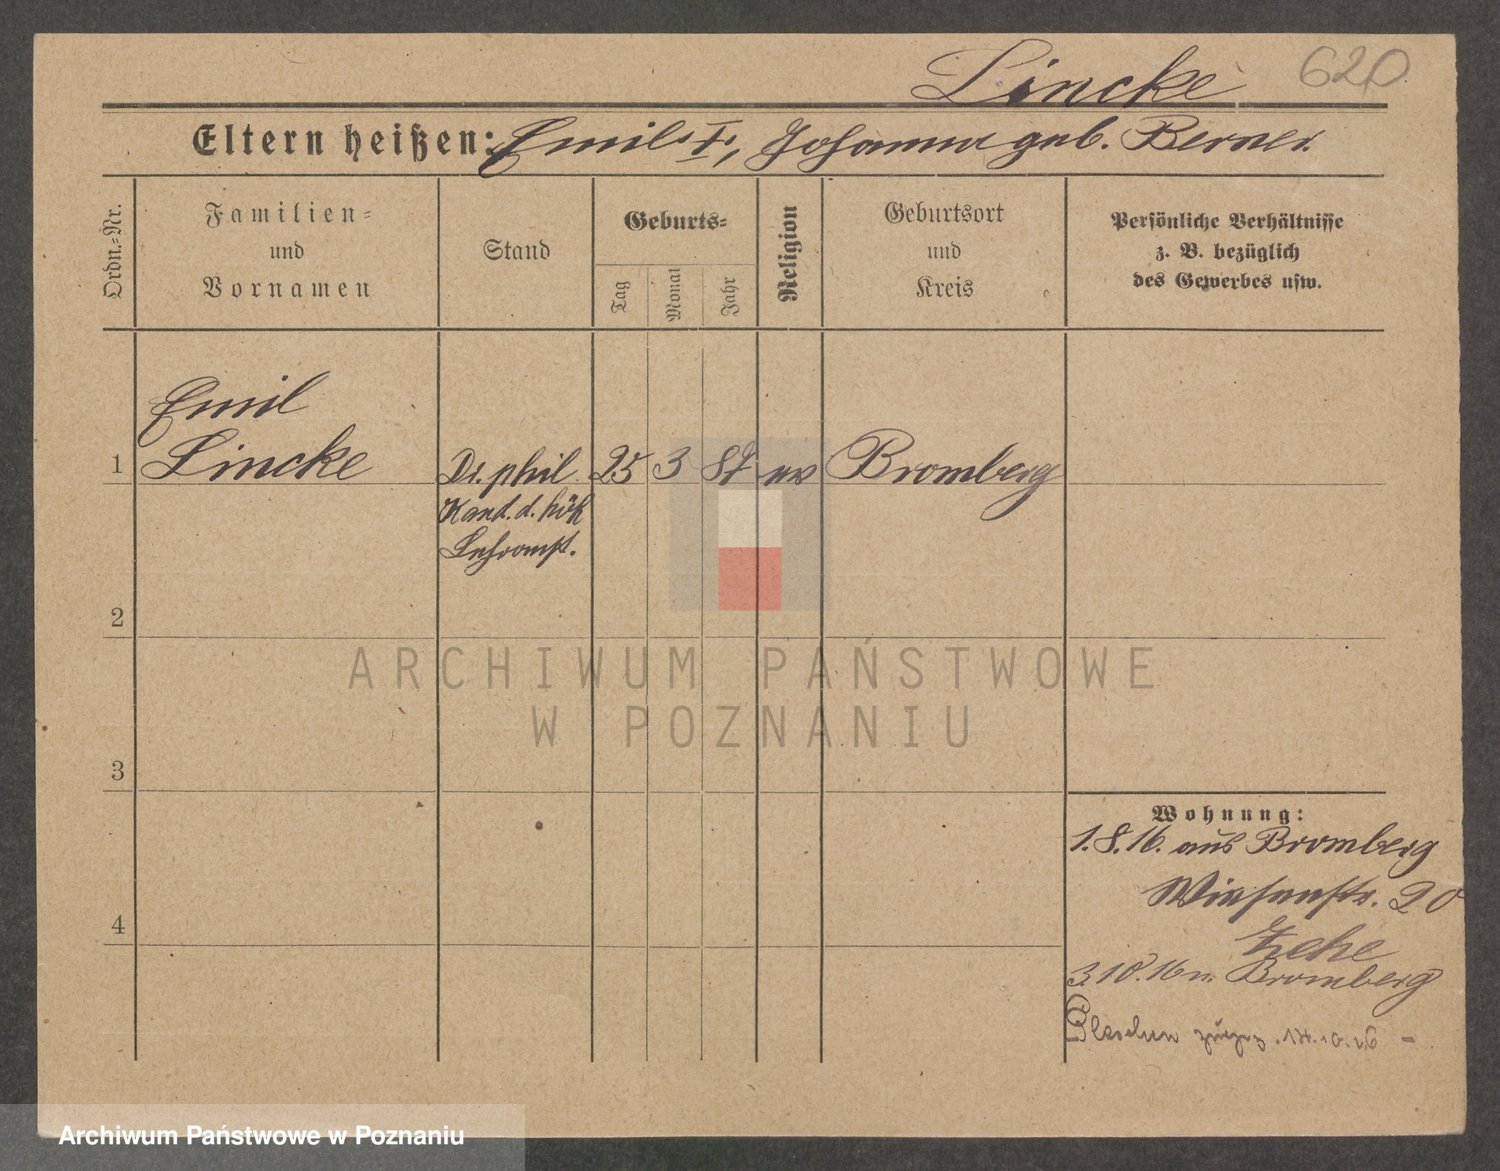 Lincke 620
Eltern heißen: Emil I, Johanna geb. Berner.
Ordn.-Nr.
Familien-
und
Vornamen
Stand
Geburts-
Tag
Monat
Jahr
Religion
Geburtsort
und
Kreis
Persönliche Verhältnisse
z. B. bezüglich
des Gewerbes usw.
Emil
1 Lincke Dr. phil. 25 3 87 ev Bromberg
Kand. d. höh
Lehramt.
2
3
4
Wohnung:
1.8.16. aus Bromberg
Wiesenstr. 20
3.10.16 n. Bromberg
14.10.16 -
ARCHIWUM PAŃSTWOWE
W POZNANIU
Archiwum Państwowe w Poznaniu